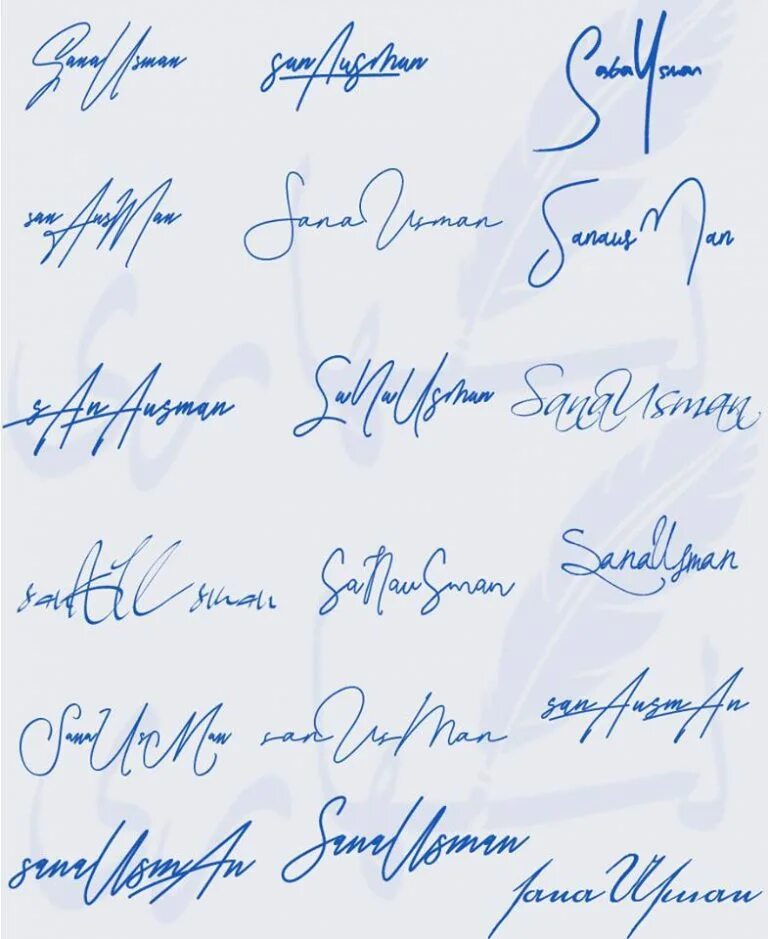 Sana Usman
sanAusman
Saba Usman
sanAusMan
Sana Usman
Sanaus Man
sAnAusman
SaNaUsman
SanaUsman
sanaUsman
SaNauSman
SanaUsman
SanaUsMan
sanaUsMan
sanAusmAn
sanaUsmAn
SanaUsman
sanaUsman